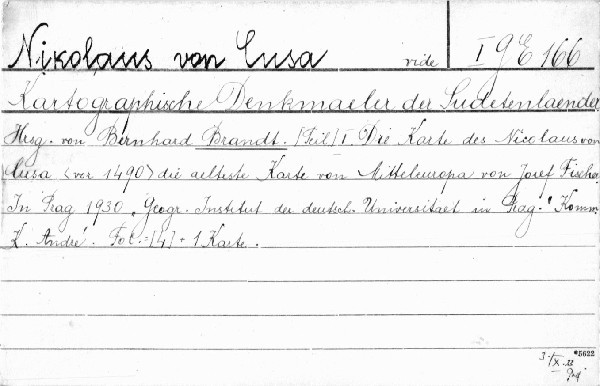 Nikolaus von Cusa vide I 9 E 166
Kartographische Denkmaeler der Sudetenlaender
Hrsg. von Bernhard Brandt. [Teil] I Die Karte des Nicolaus von
Cusa <vor 1490> die aelteste Karte von Mitteleuropa von Josef Fischer
In Prag 1930, Geogr. Institut der deutsch. Universitaet in Prag. Komm.
K. André. Fol. - [4] + 1 Karte.
*5622